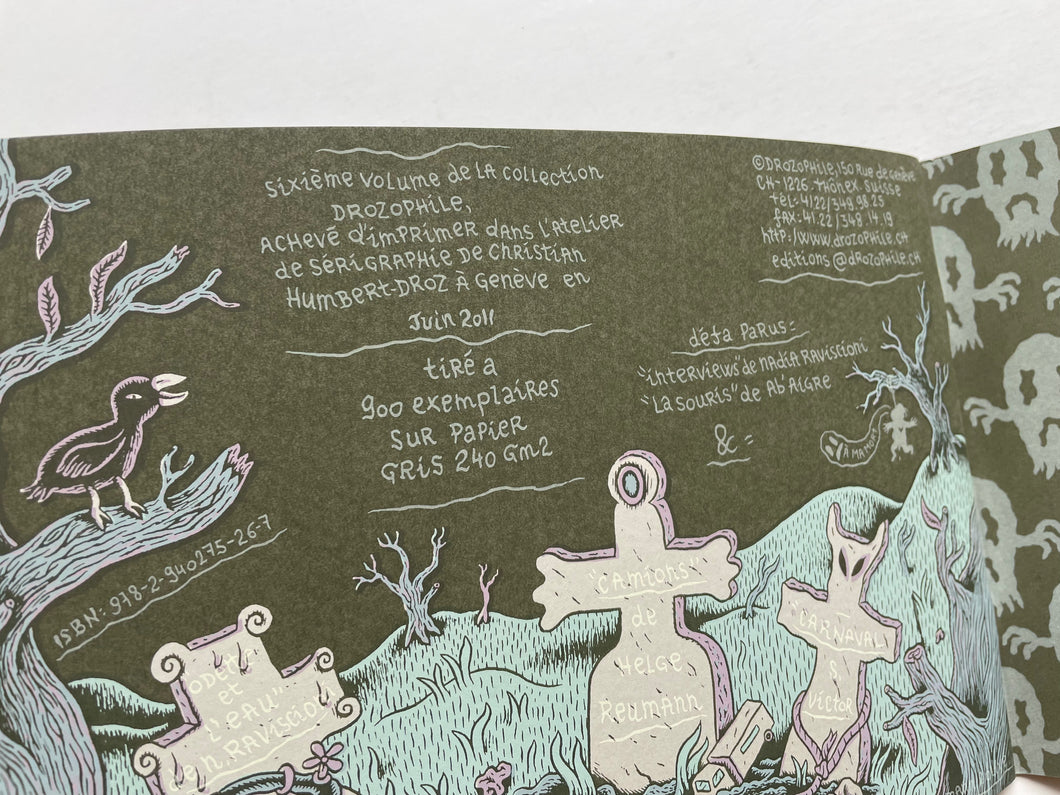 Sixième volume de la collection
DROZOPHILE,
ACHEVÉ d'imprimer dans l'atelier
de SÉRIGRAPHIE DE Christian
Humbert-Droz à Genève en
Juin 2011
tiré a
900 exemplaires
sur papier
gris 240 Gm2
©DROZOPHILE, 150 Rue de Genève
CH-1226. thônex. Suisse
tèl: 41/22/349 98 25
fax: 41.22/348.14.19
http:/www.drozophile.CH
editions@drozophile.CH
déja parus:
"interviews" de nadia Raviscioni
"La souris" de Ab'Aigre
& :
ISBN: 978-2-940275-26-7
"odette
et
l'eau"
de n. Raviscioni
"Camions"
de
Helge
Reumann
"CARNAVAL"
S.
Victor